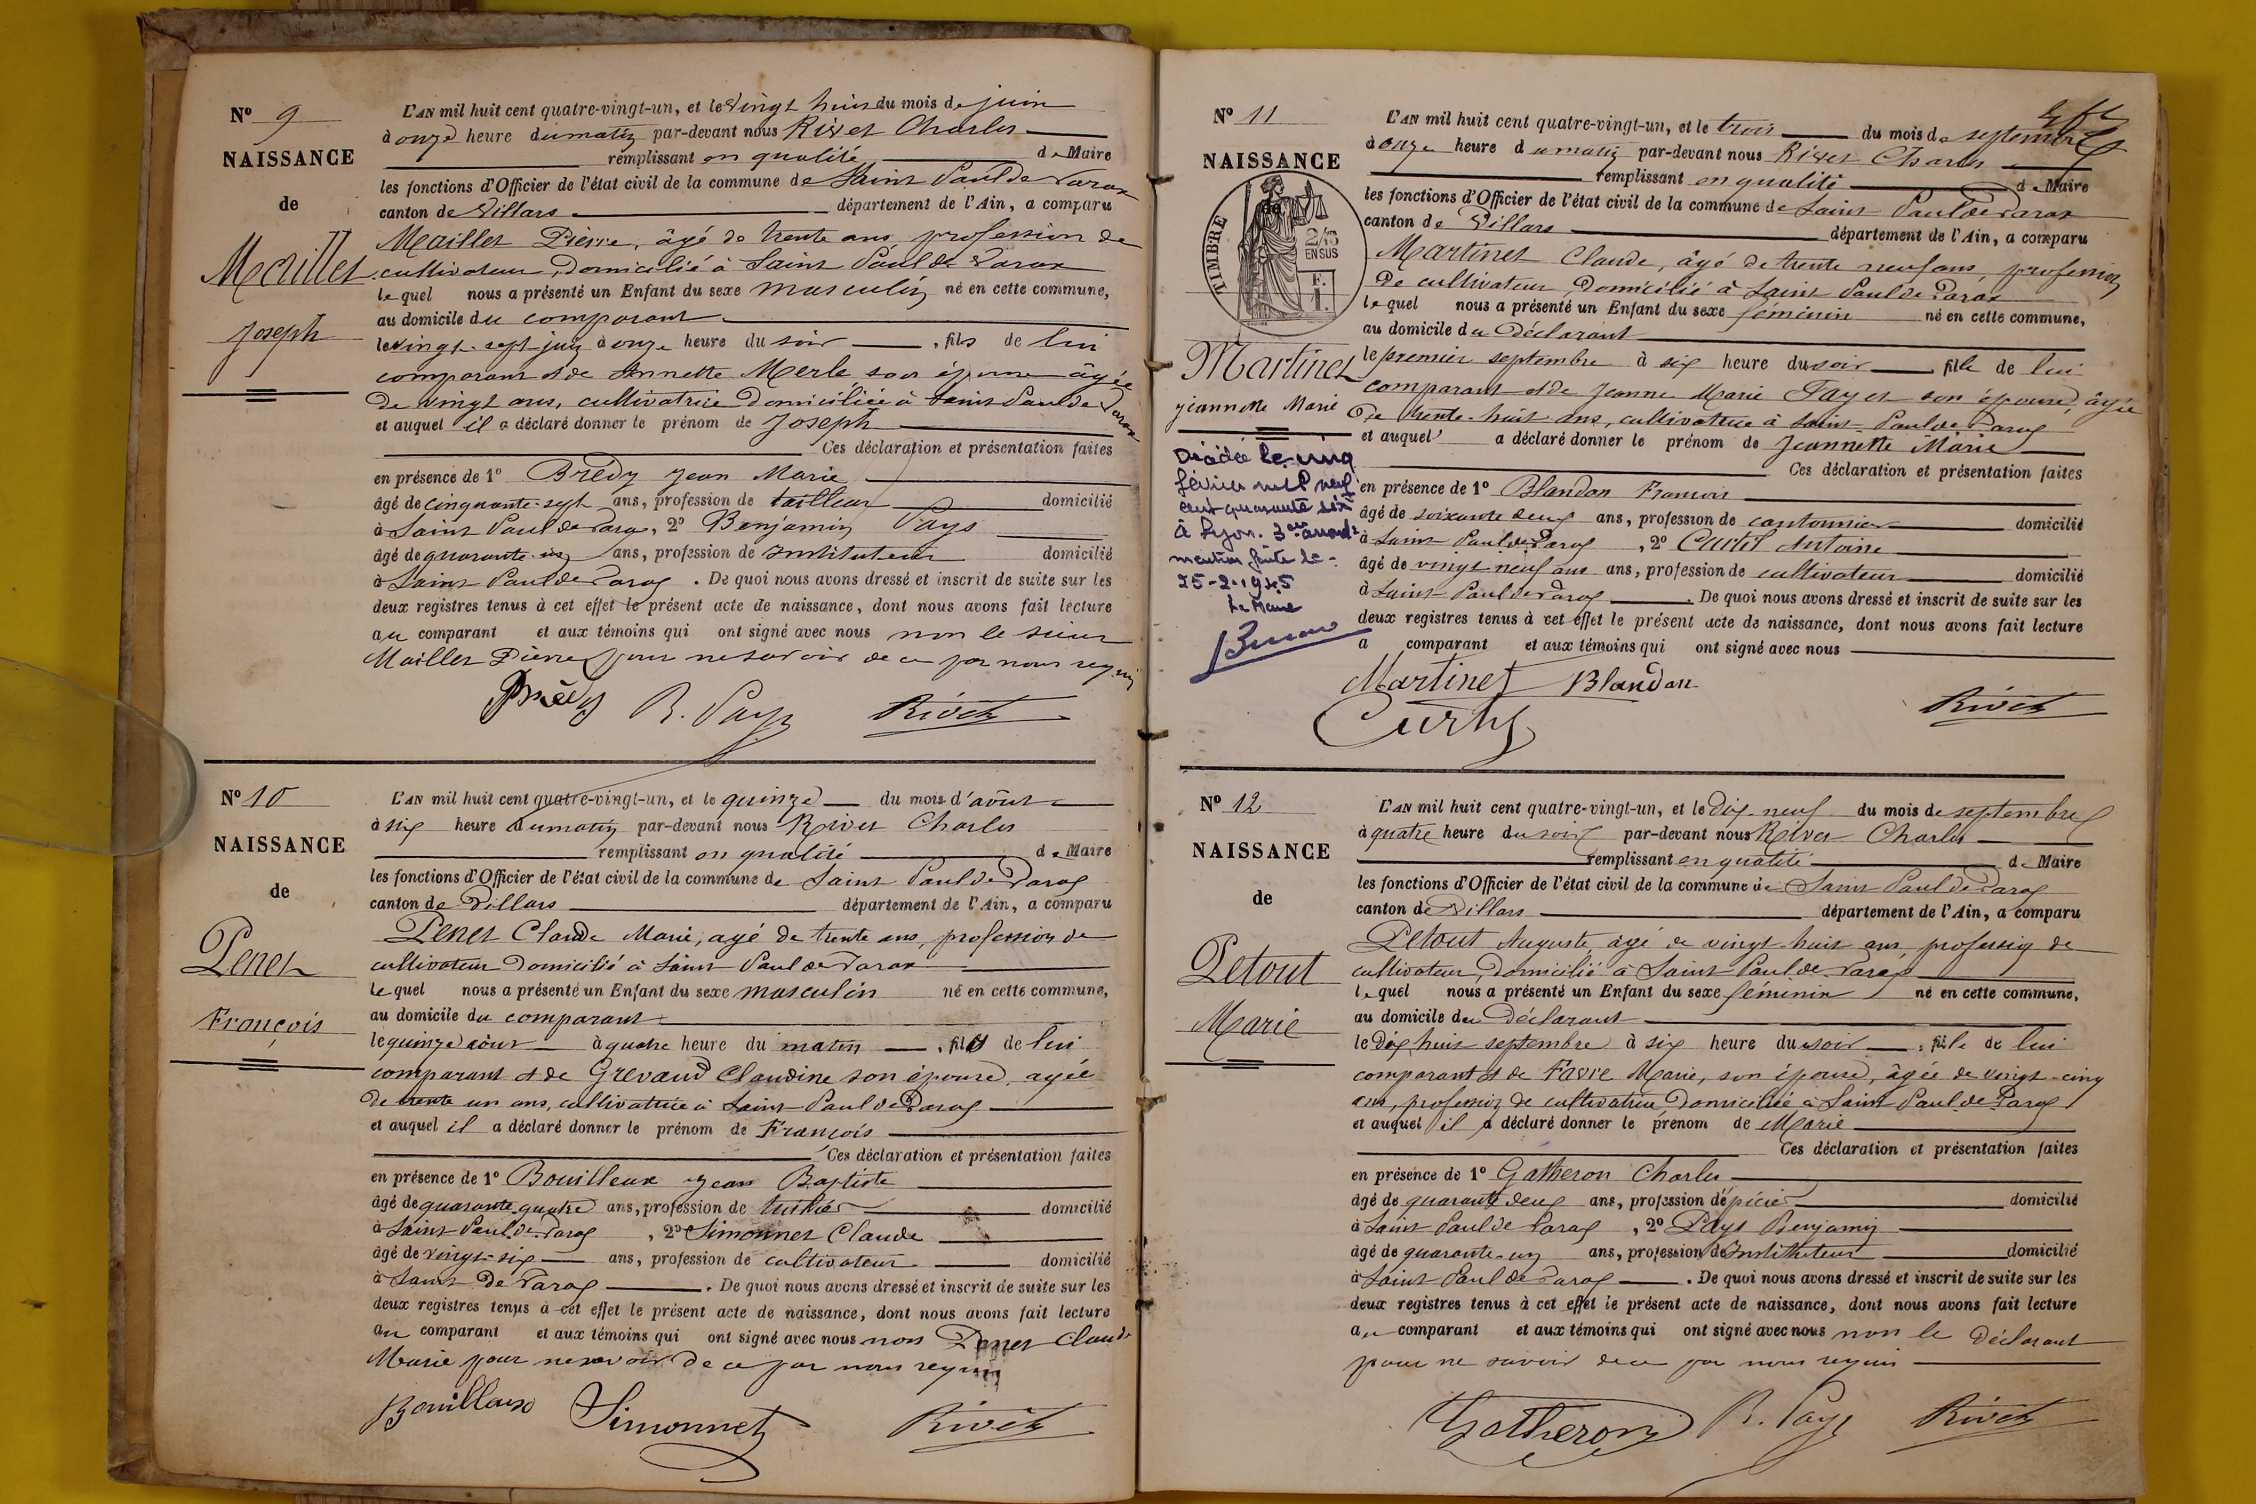 Nº 9
NAISSANCE
de
Maillet
Joseph
L'AN mil huit cent quatre-vingt-un, et le vingt huit du mois de juin
à onze heure du matin par-devant nous Rivet Charles
remplissant en qualité de Maire
les fonctions d'Officier de l'état civil de la commune de Saint Paul de Varax
canton de Villars département de l'Ain, a comparu
Maillet Pierre, âgé de trente ans, profession de
cultivateur, domicilié à Saint Paul de Varax
lequel nous a présenté un Enfant du sexe masculin né en cette commune,
au domicile du comparant
le vingt-sept juin à onze heure du soir, fils de lui
comparant et de Annette Merle son épouse âgée
de vingt ans, cultivatrice domiciliée à Saint Paul de Varax
et auquel il a déclaré donner le prénom de Joseph
Ces déclaration et présentation faites
en présence de 1º Brédy Jean Marie
âgé de cinquante-sept ans, profession de tailleur domicilié
à Saint Paul de Varax, 2º Benjamin Pays
âgé de quarante-un ans, profession de Instituteur domicilié
à Saint Paul de Varax. De quoi nous avons dressé et inscrit de suite sur les
deux registres tenus à cet effet le présent acte de naissance, dont nous avons fait lecture
au comparant et aux témoins qui ont signé avec nous non le sieur
Maillet Pierre pour ne savoir de ce par nous requis
Brédy B. Pays Rivet
Nº 10
NAISSANCE
de
Penet
François
L'AN mil huit cent quatre-vingt-un, et le quinze du mois d'août
à six heure du matin par-devant nous Rivet Charles
remplissant en qualité de Maire
les fonctions d'Officier de l'état civil de la commune de Saint Paul de Varax
canton de Villars département de l'Ain, a comparu
Penet Claude Marie, agé de trente ans, profession de
cultivateur domicilié à Saint Paul de Varax
lequel nous a présenté un Enfant du sexe masculin né en cette commune,
au domicile du comparant
le quinze août à quatre heure du matin, fils de lui
comparant et de Grevaud Claudine son épouse, agée
de trente un ans, cultivatrice à Saint Paul de Varax
et auquel il a déclaré donner le prénom de François
Ces déclaration et présentation faites
en présence de 1º Bouilleux Jean Baptiste
âgé de quarante quatre ans, profession de tuilier domicilié
à Saint Paul de Varax, 2º Simonnet Claude
âgé de vingt-six ans, profession de cultivateur domicilié
à Saint de Varax. De quoi nous avons dressé et inscrit de suite sur les
deux registres tenus à cet effet le présent acte de naissance, dont nous avons fait lecture
au comparant et aux témoins qui ont signé avec nous non Penet Claude
Marie pour ne savoir de ce par nous requis
Bouilleux Simonnet Rivet
Nº 11
NAISSANCE
de
TIMBRE
2/10
EN SUS
F.
1.
Martinet
Jeannette Marie
Décédée le cinq
février mil neuf
cent quarante six
à Lyon. 3e arrondt
mention faite le
Le Maire
L'AN mil huit cent quatre-vingt-un, et le trois du mois de septembre
à onze heure du matin par-devant nous Rivet Charles
remplissant en qualité de Maire
les fonctions d'Officier de l'état civil de la commune de Saint Paul de Varax
canton de Villars département de l'Ain, a comparu
Martinet Claude, âgé de trente neuf ans, profession
de cultivateur, domicilié à Saint Paul de Varax
lequel nous a présenté un Enfant du sexe féminin né en cette commune,
au domicile du Déclarant
le premier septembre à six heure du soir, fille de lui
comparant et de Jeanne Marie Fayet son épouse, âgée
de trente-huit ans, cultivatrice à Saint Paul de Varax
et auquel a déclaré donner le prénom de Jeannette Marie
Ces déclaration et présentation faites
en présence de 1º Blandon François
âgé de soixante deux ans, profession de cantonnier domicilié
à Saint Paul de Varax, 2º Curtil Antoine
âgé de vingt neuf ans ans, profession de cultivateur domicilié
à Saint Paul de Varax. De quoi nous avons dressé et inscrit de suite sur les
deux registres tenus à cet effet le présent acte de naissance, dont nous avons fait lecture
a comparant et aux témoins qui ont signé avec nous
Martinet Blandon
Rivet
Nº 12
NAISSANCE
de
Petout
Marie
L'AN mil huit cent quatre-vingt-un, et le dix neuf du mois de septembre
à quatre heure du soir par-devant nous Rivet Charles
remplissant en qualité de Maire
les fonctions d'Officier de l'état civil de la commune de Saint Paul de Varax
canton de Villars département de l'Ain, a comparu
Petout Auguste âgé de vingt huit ans, profession de
cultivateur, domicilié à Saint Paul de Varax
lequel nous a présenté un Enfant du sexe féminin né en cette commune,
au domicile du Déclarant
le dix huit septembre à six heure du soir, fille de lui
comparant et de Favre Marie, son épouse, âgée de vingt-cinq
ans, profession de cultivatrice, domiciliée à Saint Paul de Varax
et auquel il a déclaré donner le prénom de Marie
Ces déclaration et présentation faites
en présence de 1º Gatheron Charles
âgé de quarante deux ans, profession d'épicier domicilié
à Saint Paul de Varax, 2º Pays Benjamin
âgé de quarante-un ans, profession de Instituteur domicilié
à Saint Paul de Varax. De quoi nous avons dressé et inscrit de suite sur les
deux registres tenus à cet effet le présent acte de naissance, dont nous avons fait lecture
au comparant et aux témoins qui ont signé avec nous non le Déclarant
pour ne savoir de ce par nous requis
Gatheron B. Pays Rivet